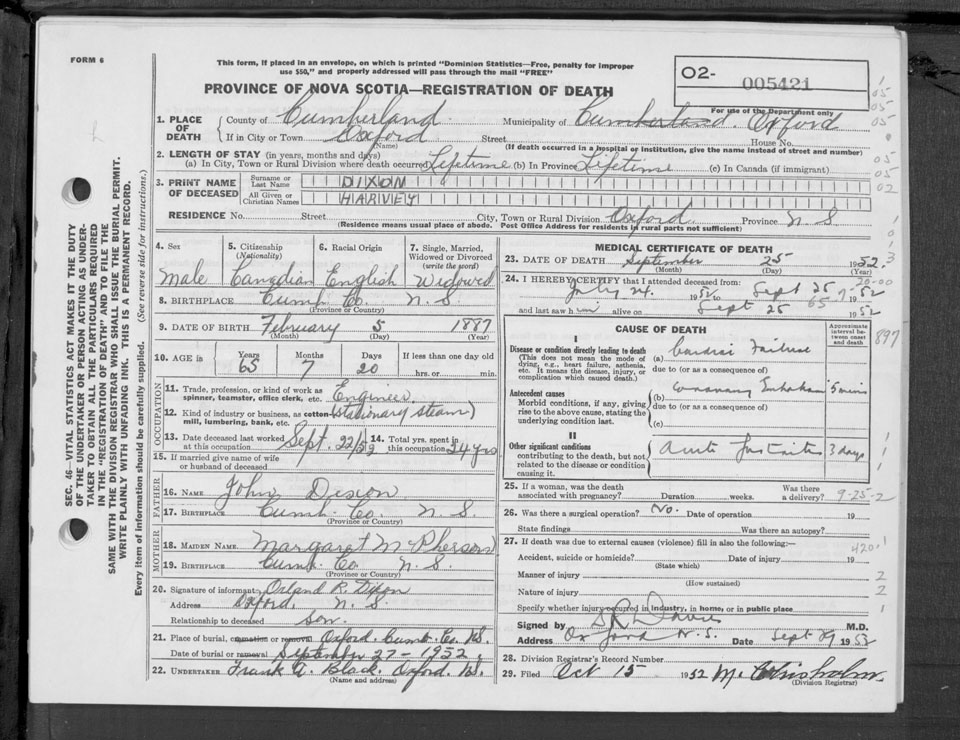 FORM 6
This form, if placed in an envelope, on which is printed "Dominion Statistics—Free, penalty for improper
use $50," and properly addressed will pass through the mail "FREE"
PROVINCE OF NOVA SCOTIA—REGISTRATION OF DEATH
O2- 005421
For use of the Department only
1. PLACE OF DEATH
County of Cumberland Municipality of Cumberland. Oxford
If in City or Town Oxford Street House No.
(Name) (If death occurred in a hospital or institution, give the name instead of street and number)
2. LENGTH OF STAY (in years, months and days)
(a) In City, Town or Rural Division where death occurred Lifetime (b) In Province Lifetime (c) In Canada (if immigrant)
3. PRINT NAME OF DECEASED
Surname or Last Name DIXON
All Given or Christian Names HARVEY
RESIDENCE No. Street City, Town or Rural Division Oxford Province N. S
(Residence means usual place of abode. Post Office Address for residents in rural parts not sufficient)
4. Sex 5. Citizenship (Nationality) 6. Racial Origin 7. Single, Married, Widowed or Divorced (write the word)
Male Canadian English Widowed
8. BIRTHPLACE Cumb. Co. N. S
(Province or Country)
9. DATE OF BIRTH February 5 1887
(Month) (Day) (Year)
10. AGE in Years Months Days If less than one day old
65 7 20 hrs. or min.
OCCUPATION
11. Trade, profession, or kind of work as spinner, teamster, office clerk, etc. Engineer
12. Kind of industry or business, as cotton mill, lumbering, bank, etc. (stationary steam)
13. Date deceased last worked at this occupation Sept. 22/52 14. Total yrs. spent in this occupation 24 yrs
15. If married give name of wife or husband of deceased
FATHER
16. NAME John Dixon
17. BIRTHPLACE Cumb. Co. N. S.
(Province or Country)
MOTHER
18. MAIDEN NAME Margaret McPherson
19. BIRTHPLACE Cumb. Co. N. S.
(Province or Country)
20. Signature of informant Orland R. Dixon
Address Oxford, N. S.
Relationship to deceased son.
21. Place of burial, cremation or removal Oxford. Cumb. Co. N.S.
Date of burial or removal September 27 - 1952
22. UNDERTAKER Frank A. Black. Oxford N.S.
(Name and address)
MEDICAL CERTIFICATE OF DEATH
23. DATE OF DEATH September 25 1952
(Month) (Day) (Year)
24. I HEREBY CERTIFY that I attended deceased from:
July 24. 1952 to Sept 25 1952
and last saw him alive on Sept 25 1952
CAUSE OF DEATH
Approximate interval between onset and death
I
Disease or condition directly leading to death
(This does not mean the mode of dying, e.g., heart failure, asthenia, etc. It means the disease, injury, or complication which caused death.)
(a) Cardiac Failure
due to (or as a consequence of)
Antecedent causes
Morbid conditions, if any, giving rise to the above cause, stating the underlying condition last.
(b) Coronary 5 min
due to (or as a consequence of)
(c)
II
Other significant conditions
contributing to the death, but not related to the disease or condition causing it.
Acute 3 days
25. If a woman, was the death associated with pregnancy? Duration weeks. Was there a delivery?
9-25-2
26. Was there a surgical operation? No. Date of operation 19
State findings Was there an autopsy?
27. If death was due to external causes (violence) fill in also the following:—
Accident, suicide or homicide? Date of injury 19
(State which)
Manner of injury
(How sustained)
Nature of injury
Specify whether injury occurred in industry, in home, or in public place
Signed by D R Davis M.D.
Address Oxford N.S. Date Sept 29 1952
28. Division Registrar's Record Number
29. Filed Oct 15 1952 M. Chisholm
(Division Registrar)
SEC. 46—VITAL STATISTICS ACT MAKES IT THE DUTY
OF THE UNDERTAKER OR PERSON ACTING AS UNDER-
TAKER TO OBTAIN ALL THE PARTICULARS REQUIRED
IN THE "REGISTRATION OF DEATH" AND TO FILE THE
SAME WITH THE DIVISION REGISTRAR WHO SHALL ISSUE THE BURIAL PERMIT.
WRITE PLAINLY WITH UNFADING INK. THIS IS A PERMANENT RECORD.
Every item of information should be carefully supplied. (See reverse side for instructions.)
897
420.1